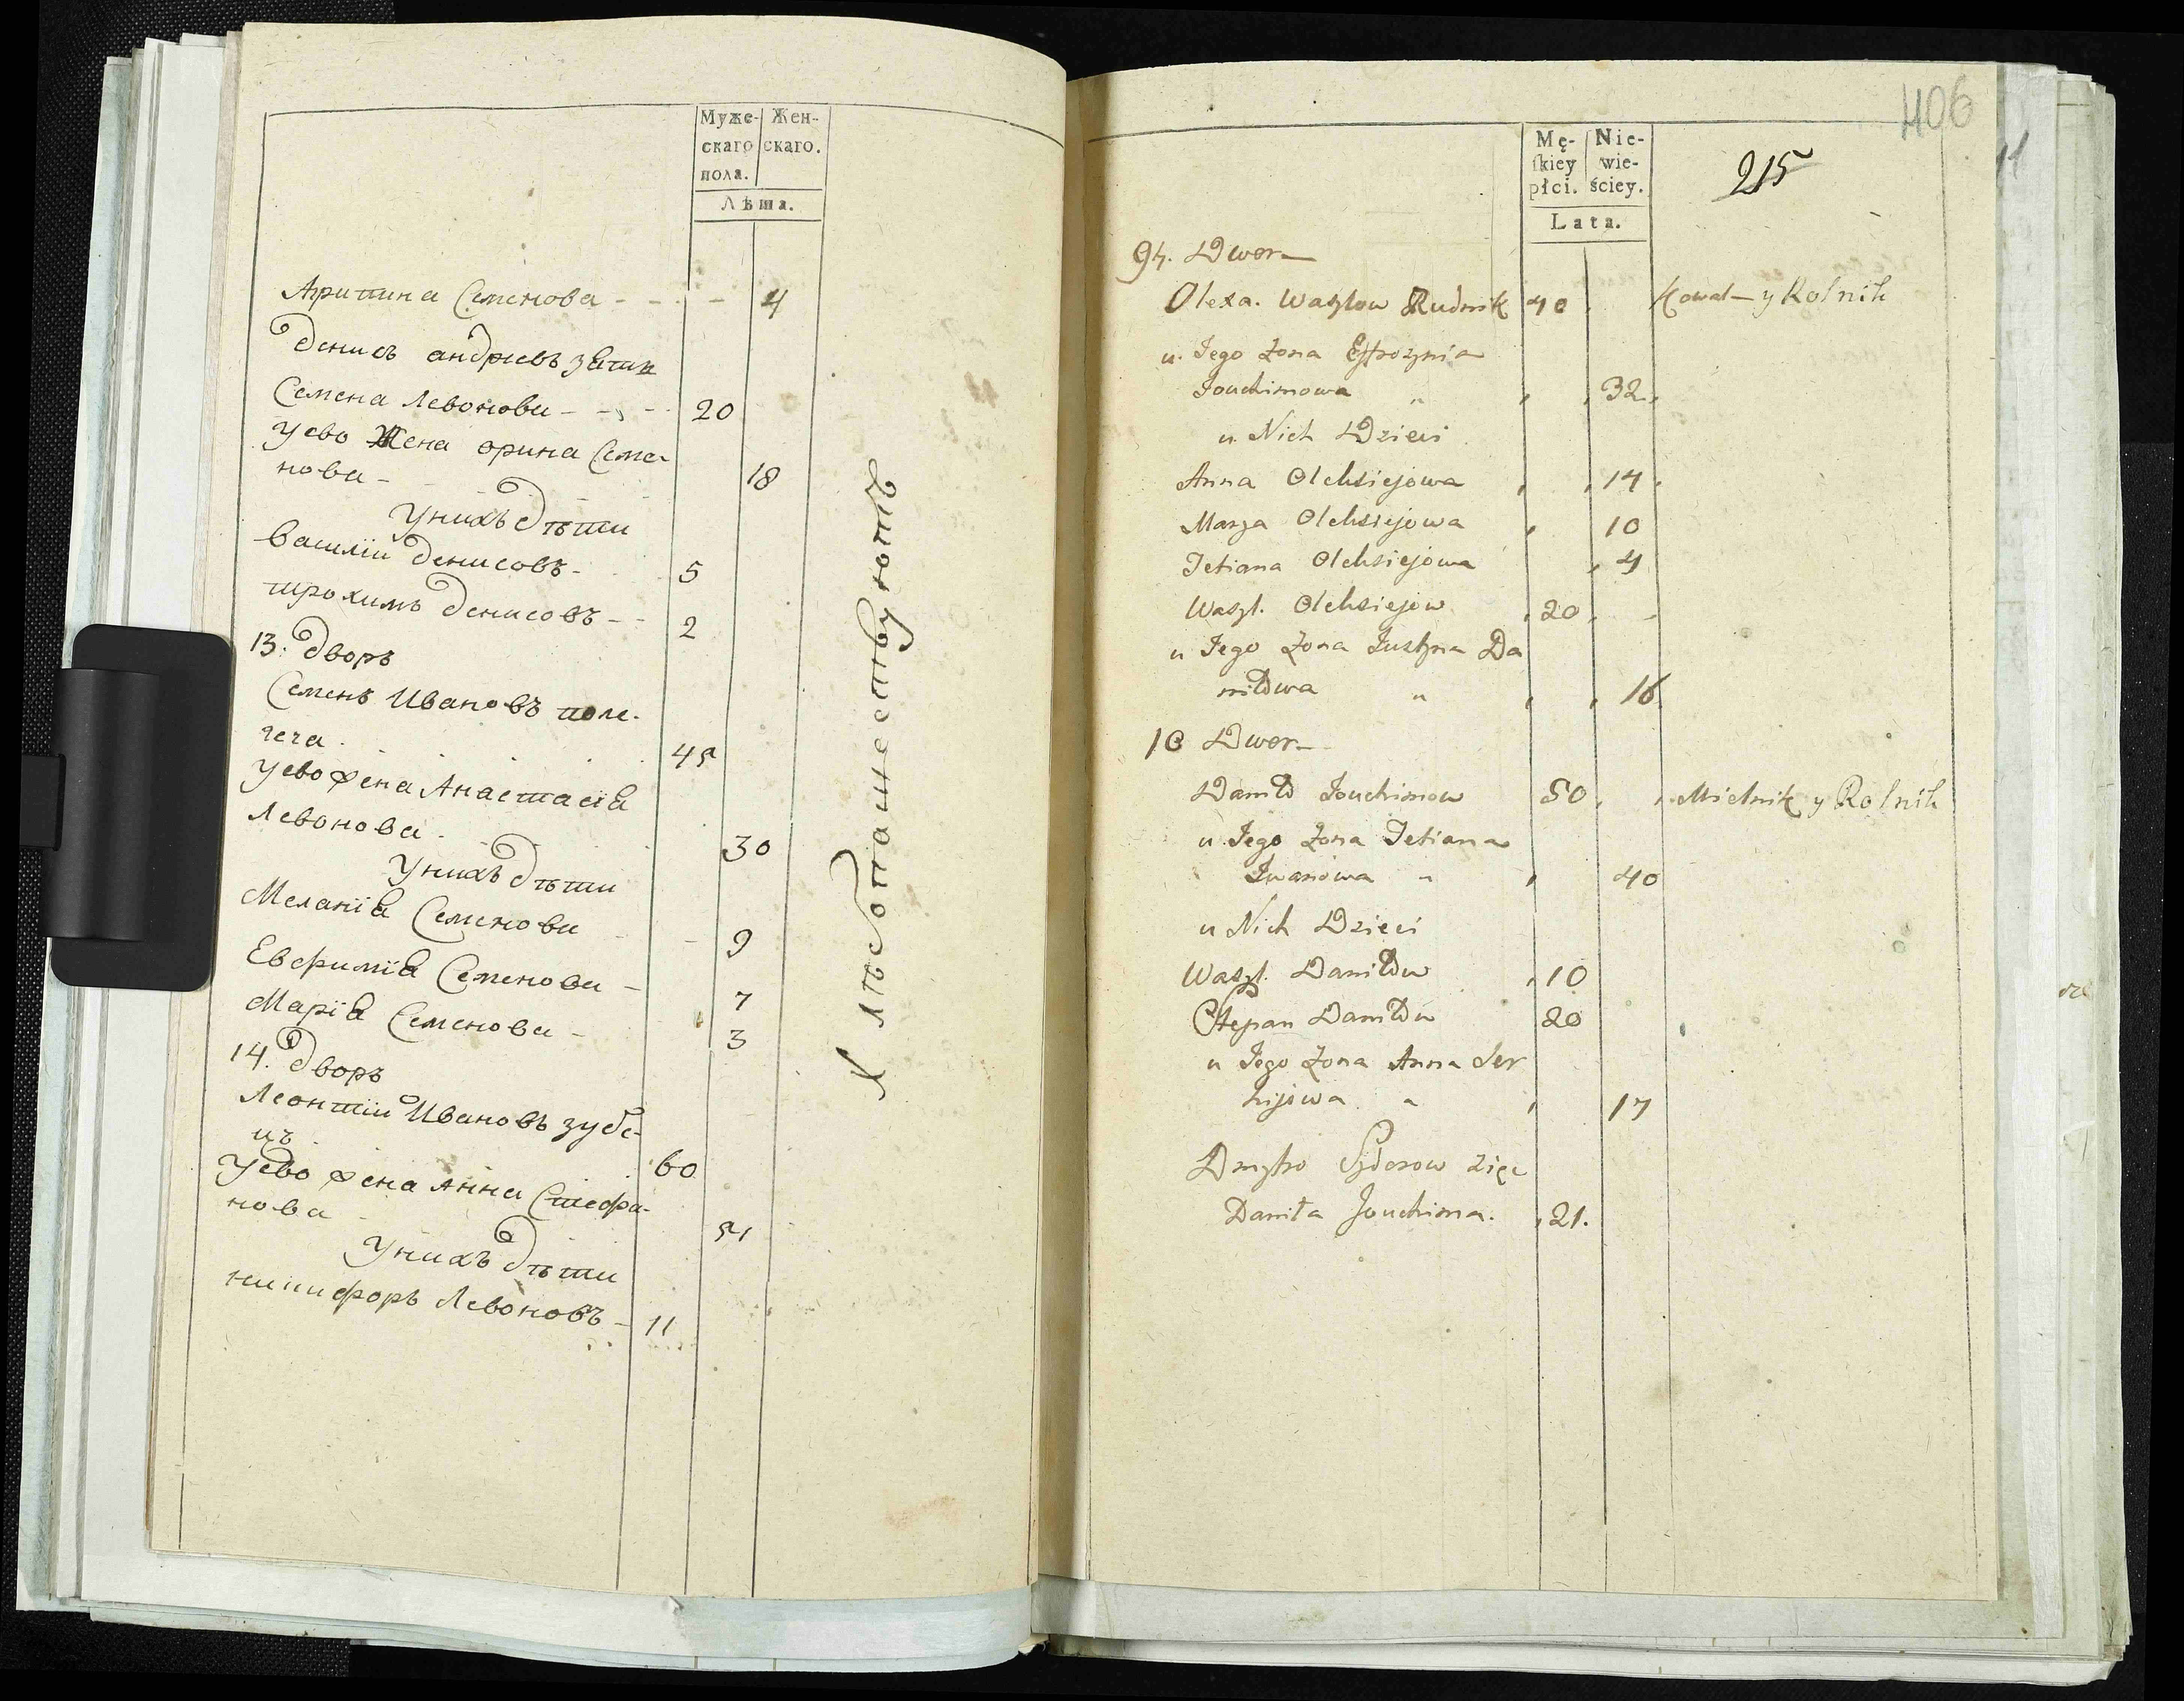 Муже-
скаго
пола.
Жен-
скаго.
Лѣта.
Агрипина Семенова - - - 4
Денисъ андрѣевъ зять
Семена Левонова - - - 20
Уево Жена орина Семе-
нова - 18
Унихъ дѣти
Василій Денисовъ - 5
трохимъ Денисовъ - - 2
13. дворъ
Семенъ Ивановъ поле-
геча. 45
Уево жена Анастасія
Левонова. 30
Унихъ дѣти
Меланія Семенова 9
Евфимія Семенова - 7
Марія Семенова - 3
14. дворъ
Леонтій Ивановъ зубе-
цъ. 60
Уево жена Анна Стефа-
нова 51
Унихъ дѣти
никифоръ Левоновъ - 11
Хлѣбопашествуютъ
406
215
Mę-
skiey
płci.
Nie-
wie-
ściey.
Lata.
94. Dwor
Olexa. Wasylow Rudnik 40 Kowal y Rolnik
u. Jego Zona Effrozynia
Jouchimowa " 32.
u Nich Dzieci
Anna Oleksiejowa 14.
Marya Oleksiejowa 10
Tetiana Oleksiejowa 4
Wasyl. Oleksiejow 20.
u Jego Zona Justyna Da
niłowa " 16
10 Dwor
Daniło Jouchimow 50. Mielnik y Rolnik
u. Jego Zona Tetiana
Iwanowa " 40
u Nich Dzieci
Wasyl. Daniłow 10
Stepan Daniłow 20
u Jego Zona Anna Ser
hijowa " 17
Dmytro Sydorow Zięc
Daniła Jouchima. 21.